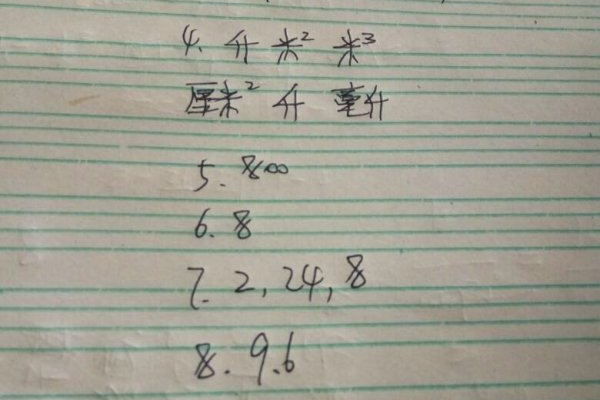 4. 升 米² 米³
厘米² 升 毫升
5. 800
6. 8
7. 2, 24, 8
8. 9.6